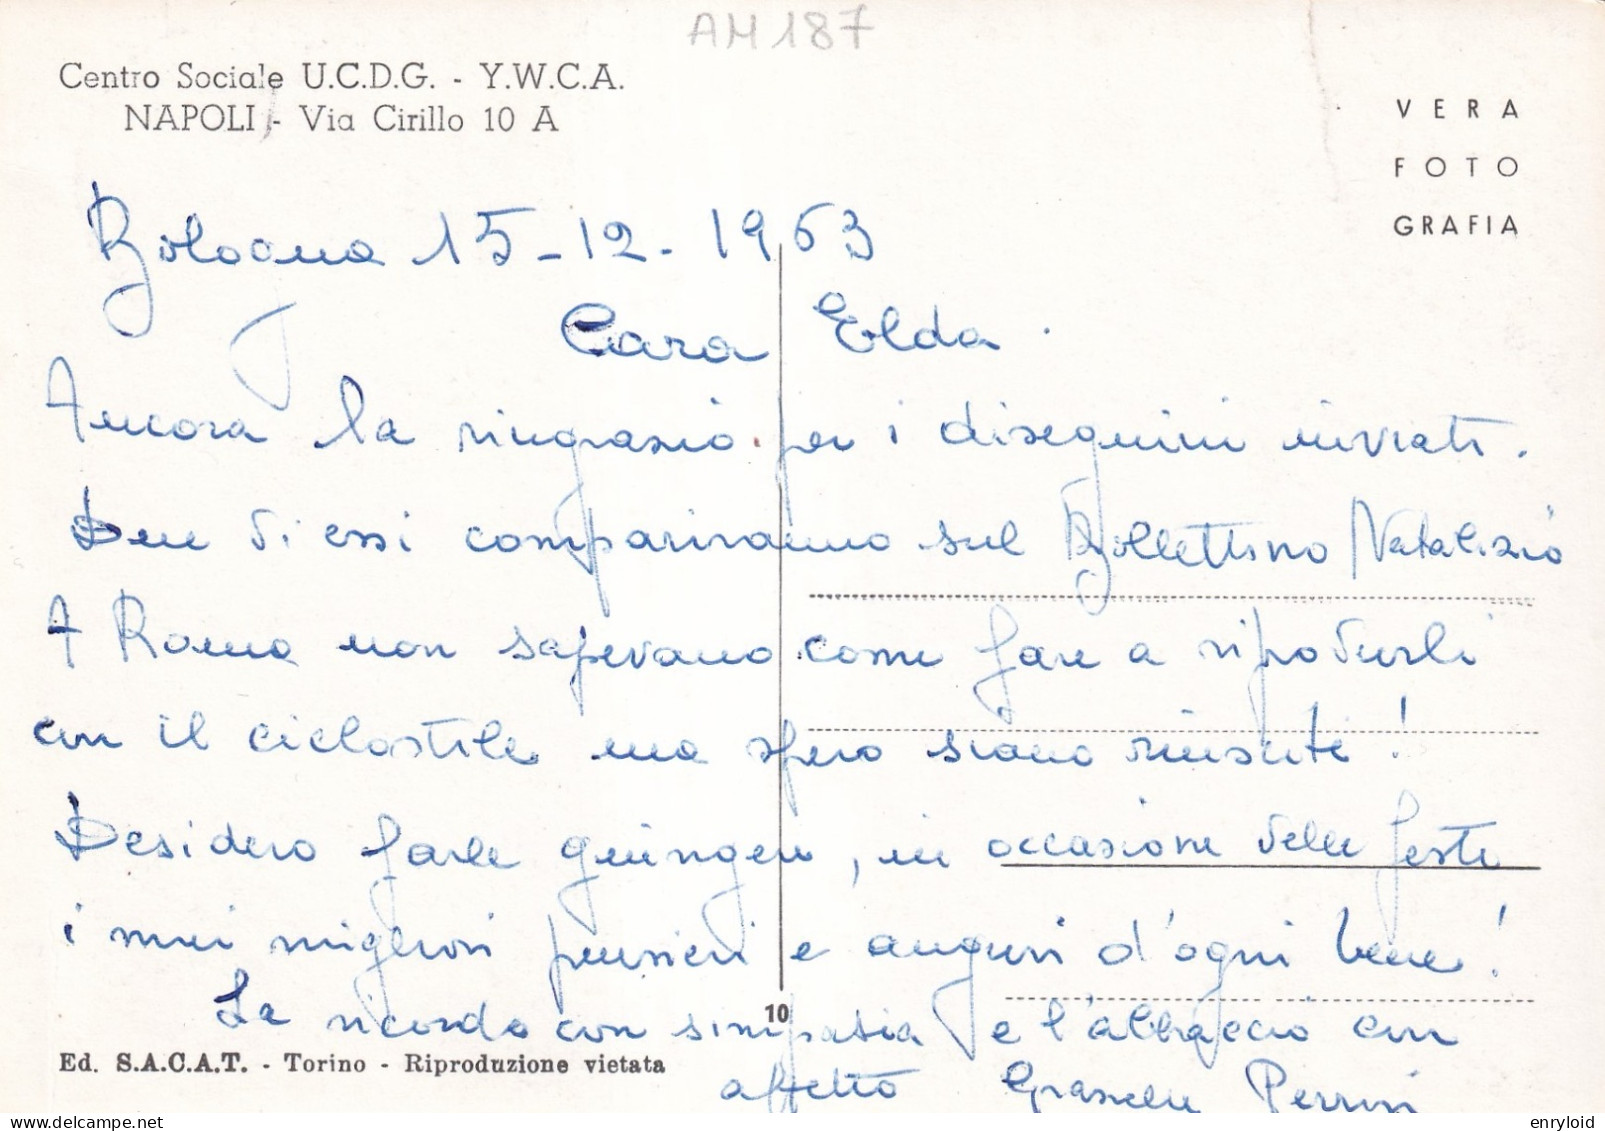 AM187
Centro Sociale U.C.D.G. - Y.W.C.A.
NAPOLI - Via Cirillo 10 A
VERA
FOTO
GRAFIA
Bologna 15-12-1963
Cara Elda.
Ancora la ringrazio per i disegnini inviati.
Due di essi compariranno sul Bollettino Natalizio
A Roma non sapevano come fare a riprodurli
con il ciclostile ma spero siano riusciti!
Desidero farle giungere, in occasione delle feste
i miei migliori pensieri e auguri d'ogni bene!
La ricordo con simpatia e l'abbraccio con
affetto Perrini
10
Ed. S.A.C.A.T. - Torino - Riproduzione vietata
delcampe.net
enryloid